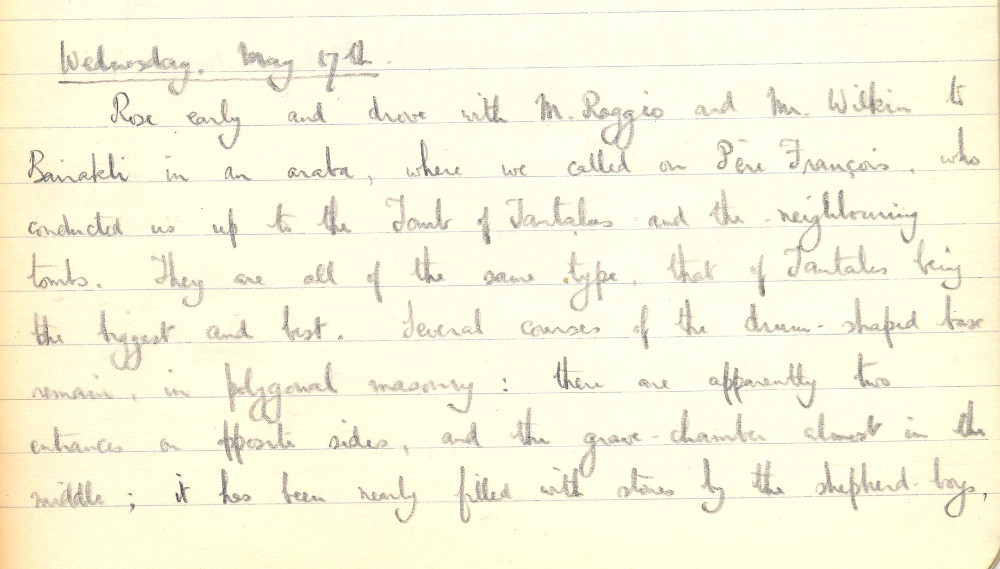 Wednesday, May 17th.
Rose early and drove with M. Roggio and Mr. Wilkin to
Bairakli in an araba, where we called on Père François, who
conducted us up to the Tomb of Tantalus and the neighbouring
tombs. They are all of the same type, that of Tantalus being
the biggest and best. Several courses of the drum-shaped base
remain, in polygonal masonry: there are apparently two
entrances on opposite sides, and the grave-chamber almost in the
middle; it has been nearly filled with stones by the shepherd-boys,